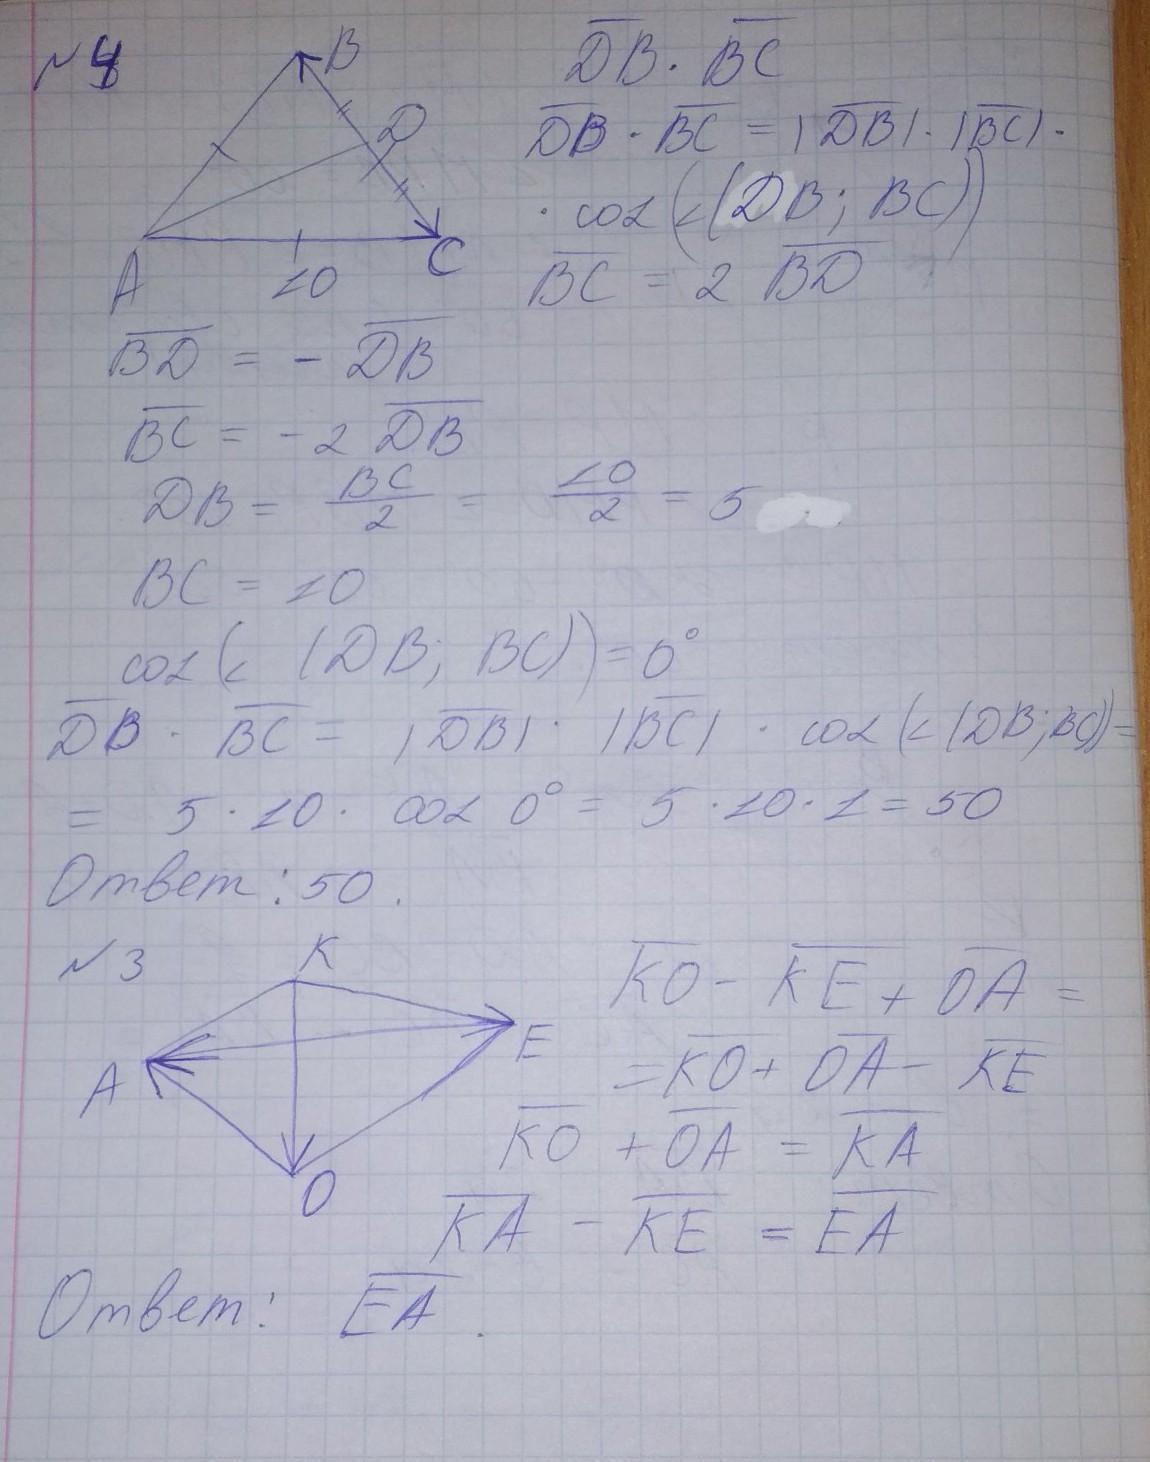 №4
B
D
A
10
C
D̅B̅ · B̅C̅
D̅B̅ · B̅C̅ = |D̅B̅| · |B̅C̅| ·
· cos(<(DB; BC))
B̅C̅ = 2 B̅D̅
B̅D̅ = - D̅B̅
B̅C̅ = - 2 D̅B̅
DB = BC/2 = 10/2 = 5
BC = 10
cos(< (DB; BC)) = 0°
D̅B̅ · B̅C̅ = |D̅B̅| · |B̅C̅| · cos(<(DB; BC)) =
= 5 · 10 · cos 0° = 5 · 10 · 1 = 50
Ответ: 50.
№3
K
E
A
O
K̅O̅ - K̅E̅ + O̅A̅ =
= K̅O̅ + O̅A̅ - K̅E̅
K̅O̅ + O̅A̅ = K̅A̅
K̅A̅ - K̅E̅ = E̅A̅
Ответ: E̅A̅.